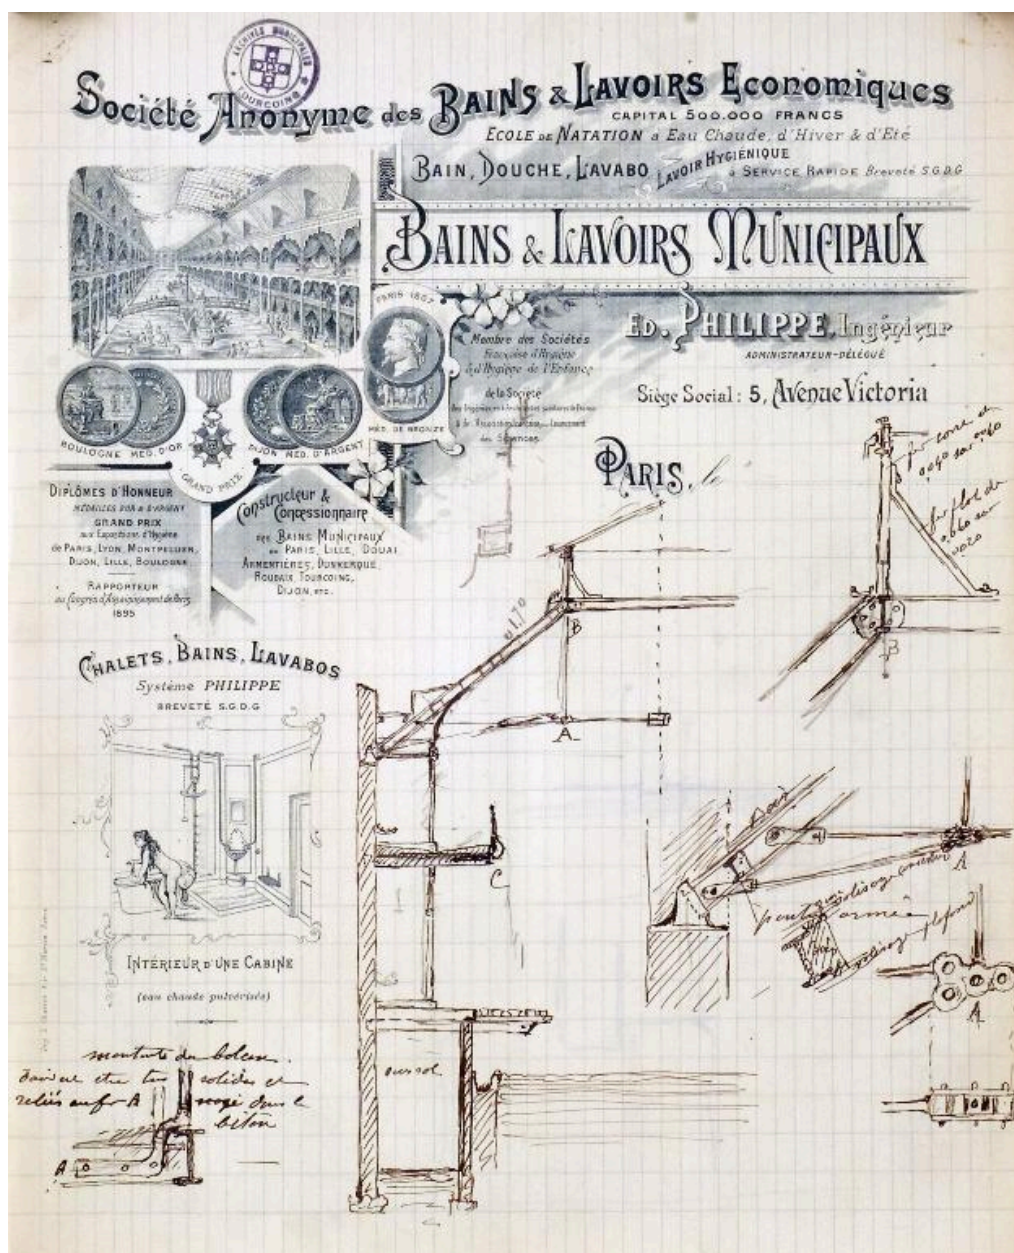 ARCHIVES MUNICIPALES
TOURCOING
Société Anonyme des BAINS & LAVOIRS Economiques
CAPITAL 500.000 FRANCS
ECOLE DE NATATION à Eau Chaude, d'Hiver & d'Eté
BAIN, DOUCHE, LAVABO LAVOIR HYGIÉNIQUE
à SERVICE RAPIDE Breveté S.G.D.G
BAINS & LAVOIRS MUNICIPAUX
ED. PHILIPPE, Ingénieur
ADMINISTRATEUR-DÉLÉGUÉ
Siège Social : 5, Avenue Victoria
PARIS, le
PARIS 1867
MED. DE BRONZE
Membre des Sociétés
Française d'Hygiène
& d'Hygiène de l'Enfance
de la Société
des Sciences
BOULOGNE MED. D'OR
GRAND PRIX
DIJON MED. D'ARGENT
DIPLÔMES D'HONNEUR
MÉDAILLES D'OR & D'ARGENT
GRAND PRIX
aux Expositions d'Hygiène
de PARIS, LYON, MONTPELLIER,
DIJON, LILLE, BOULOGNE
RAPPORTEUR
au Congrès d'Assainissement de Paris
1895
Constructeur &
Concessionnaire
des BAINS MUNICIPAUX
de PARIS, LILLE, DOUAI
ARMENTIÈRES, DUNKERQUE,
ROUBAIX, TOURCOING,
DIJON, ETC.
CHALETS, BAINS, LAVABOS
Système PHILIPPE
BREVETÉ S.G.D.G
INTÉRIEUR D'UNE CABINE
(eau chaude pulvérisée)
fer
fer plat de
1,70
B
A
A
C
B
A
armée
plafond
A
sous sol
montants du balcon
solides et
reliés au fer A dans le
béton
A